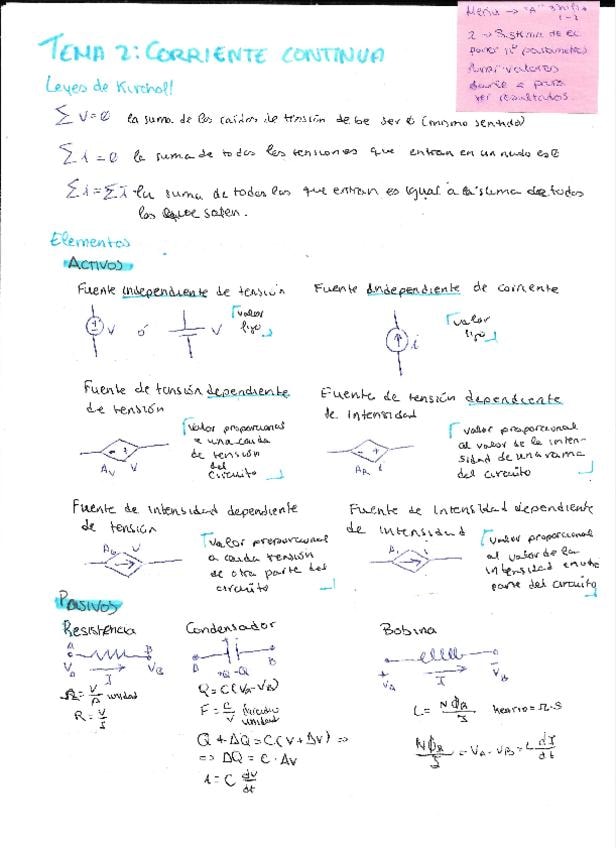 TEMA 2: CORRIENTE CONTINUA
Menu → "A"
2 → Sistema de ec
poner nº parametros
poner valores
para
ver resultados.
Leyes de Kirchoff
ΣV=0 la suma de las caidas de tensión debe ser 0 (mismo sentido)
Σi=0 la suma de todas las tensiones que entran en un nudo es 0
Σi=Σi la suma de todas las que entran es igual a la suma de todos
los que salen.
Elementos
ACTIVOS
Fuente independiente de tensión
V ó V
valor
fijo
Fuente independiente de corriente
i
valor
fijo
Fuente de tensión dependiente
de tensión
- +
Av V
valor proporcional
a una caida
de tensión
del
circuito
Fuente de tensión dependiente
de intensidad
- +
AR i
valor proporcional
al valor de la inten-
sidad de una rama
del circuito
Fuente de intensidad dependiente
de tension
V
valor proporcional
a caida tensión
de otra parte del
circuito
Fuente de intensidad dependiente
de intensidad
Ai i
valor proporcional
al valor de la
intensidad en otra
parte del circuito
PASIVOS
Resistencia
A B
VA I VB
Ω = V/A unidad
R = V/I
Condensador
A +Q -Q B
Q = C(VA-VB)
F = C/V unidad
Q + ΔQ = C(V + ΔV) ⇒
⇒ ΔQ = C · ΔV
i = C dv/dt
Bobina
A B
VA I VB
L = NΦB/I henrio = Ω·s
NΦB/I = VA - VB = L dI/dt